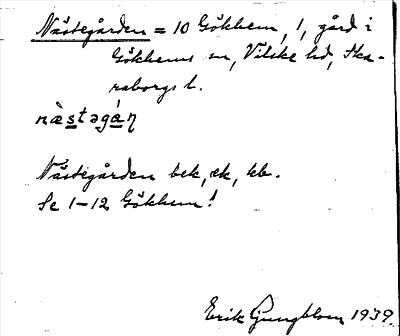 Nästegården = 10 Gökhem, 1, gård i
Gökhems sn, Vilske hd, Ska-
raborgs l.
næ̀stəgáɳ
Nästegården bek, ek, kb.
Se 1-12 Gökhem!
Erik Ljungblom 1939.